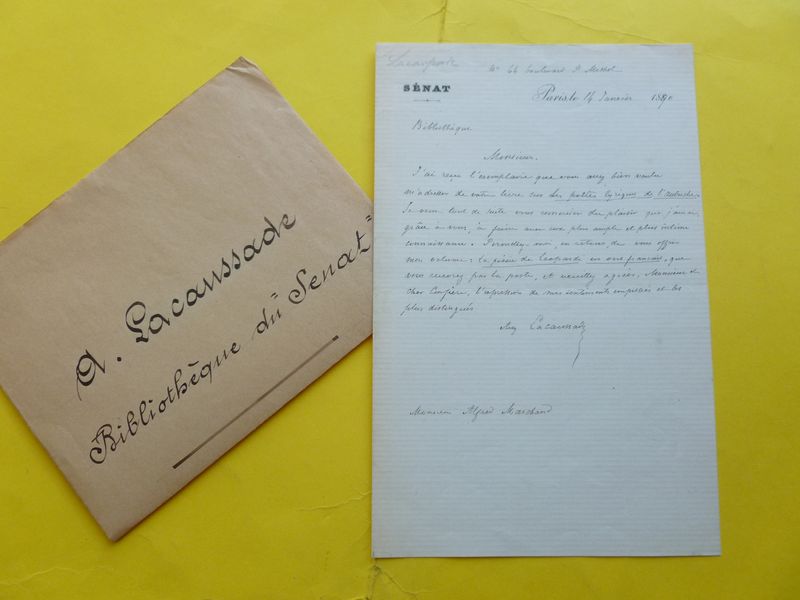 A. Lacaussade
Bibliothèque du Sénat
Lacaussade
64 boulevard St Michel
SÉNAT
Paris, le 14 Janvier 1890
Bibliothèque
Monsieur.
J'ai reçu l'exemplaire que vous avez bien voulu
m'adresser de votre livre sur les poètes lyriques de l'Autriche.
Je veux tout de suite vous remercier du plaisir que j'aurai,
grâce à vous, à faire avec eux plus ample et plus intime
connaissance. Permettez-moi, en retour de vous offrir
mon volume: la poésie de Leopardi en vers français, que
vous recevrez par la poste, et veuillez agréer, Monsieur et
cher Confrère, l'expression de mes sentiments empressés et les
plus distingués
Aug Lacaussade
Monsieur Alfred Marchand